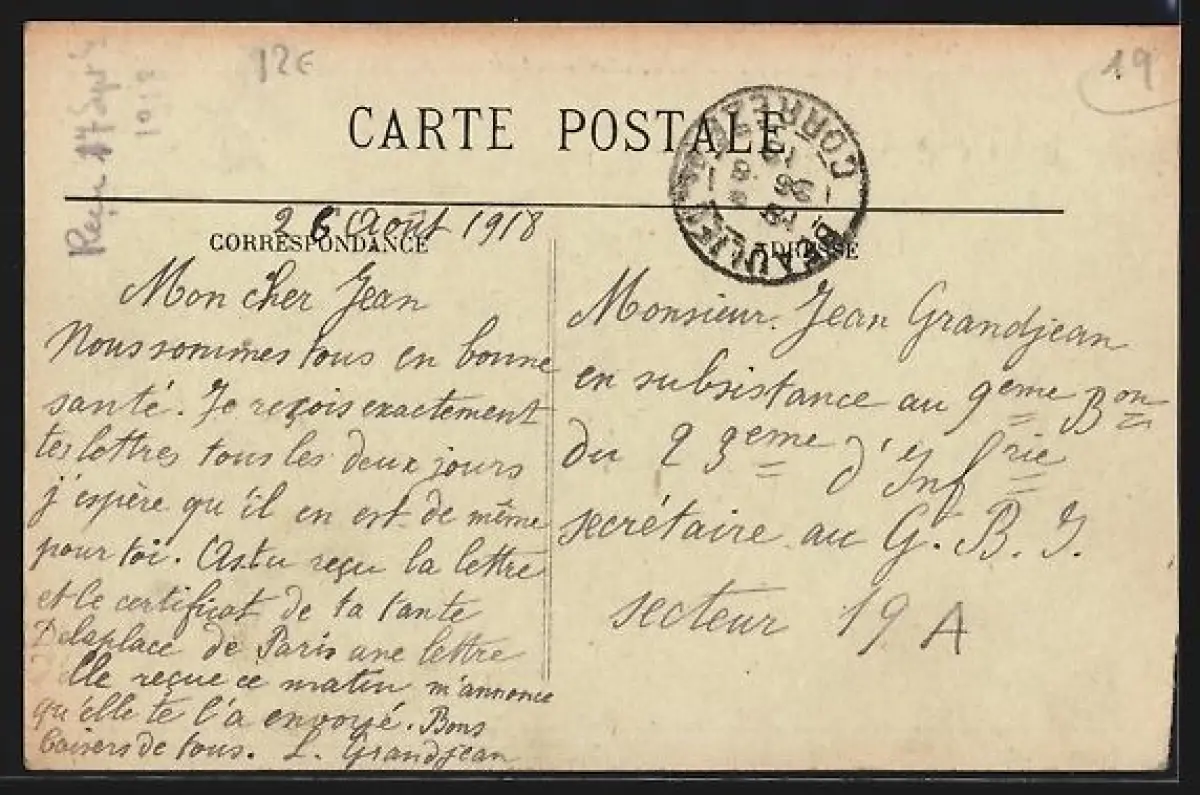 12€
19
Reçu 17 Sept
1918
CARTE POSTALE
BEAULIEU CORREZE
26 Août 1918
CORRESPONDANCE
Mon cher Jean
Nous sommes tous en bonne
santé. Je reçois exactement
tes lettres tous les deux jours
j'espère qu'il en est de même
pour toi. As tu reçu la lettre
et le certificat de ta tante
Delaplace de Paris une lettre
d'elle reçue ce matin m'annonce
qu'elle te l'a envoyé. Bons
baisers de tous. L. Grandjean
ADRESSE
Monsieur Jean Grandjean
en subsistance au 9eme Bon
du 23eme d'Infrie
secrétaire au G. B. J.
secteur 19 A